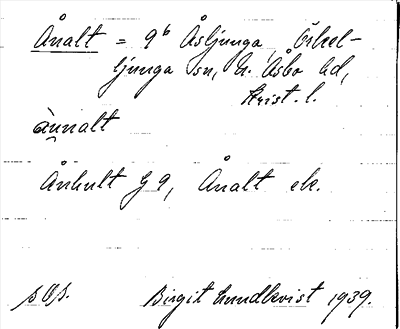 Ånalt = 9b Åsljunga, Örkel-
ljunga sn, N. Åsbo hd,
Krist. l.
ànnalt
Ånhult G 9, Ånalt ek.
s. Os.
Birgit Lundkvist 1939.